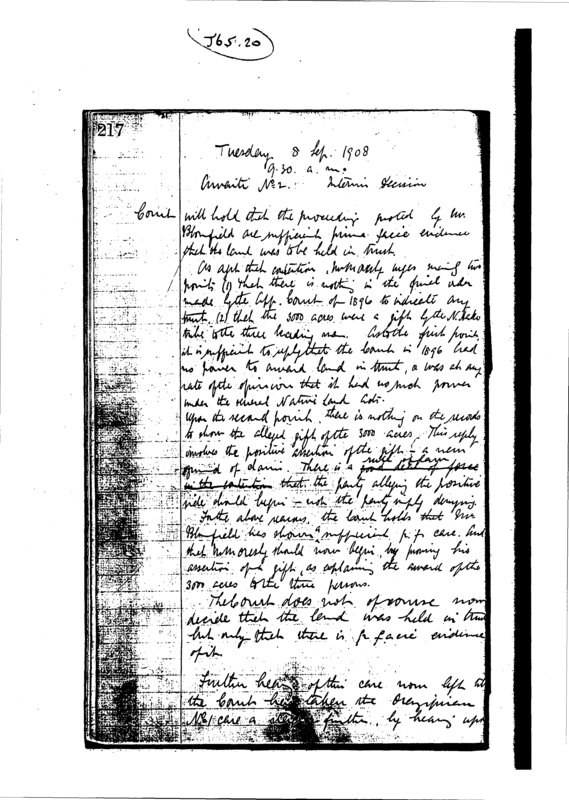 J65.20
217
Tuesday 8 Sep. 1908
9.30. a.m.
No 2. Interim Decision
Court will hold that the proceedings quoted by Mr.
Blomfield are sufficient prima facie evidence
that the land was to be held in trust.
As agst that contention, Mr Moresby urges two
points (1) that there is nothing in the final order
made by the App. Court of 1896 to indicate any
trust. (2) that the 3000 acres were a gift by the N.
tribe to the three leading men. As to the first point,
it is sufficient to reply that the Court in 1896 had
no power to award land in trust, or was at any
rate of the opinion that it had no such power
under the several Native Land Acts.
Upon the second point, there is nothing on the records
to show the alleged gift of the 3000 acres. This reply
involves the positive assertion of the gift – a new
ground of claim. There is a rule of law good deal of force
in the contention that the party alleging the positive
side should begin – not the party simply denying.
For the above reasons, the Court holds that Mr
Blomfield has shown a sufficient p.f. case, and
that Mr Moresby should now begin, by proving his
assertion of a gift, as explaining the award of the
3000 acres to the three persons.
The Court does not of course now
decide that the land was held in trust
but only that there is p. facie evidence
of it.
Further hearing of this case now left till
the Court has taken the
No 1 case a further, by hearing